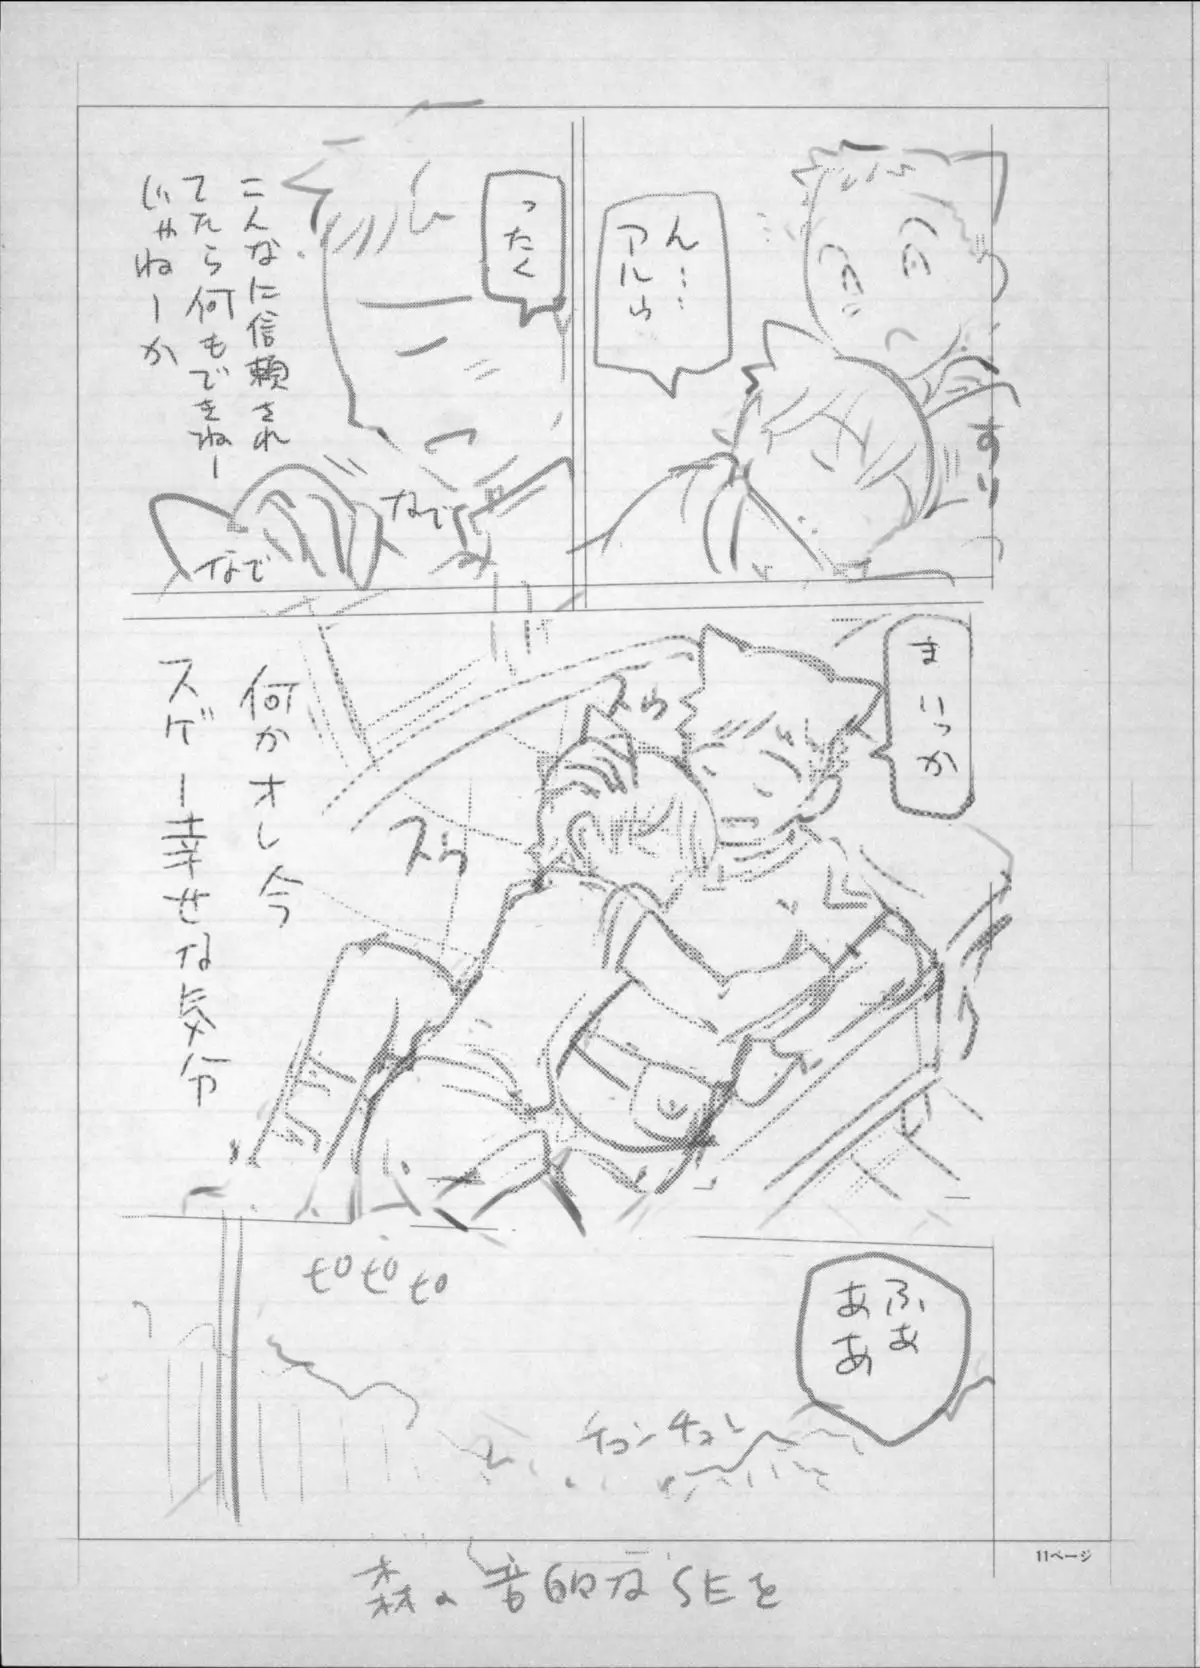 ん…
アルゥ
すり
ったく
こんなに信頼され
てたら何もできねー
じゃねーか
なで
なで
まいっか
スゥ
スゥ
何かオレ今
スゲー幸せな気分
ふぁ
ああ
ポポポ
チュンチュン
11ページ
森の音的なSEを